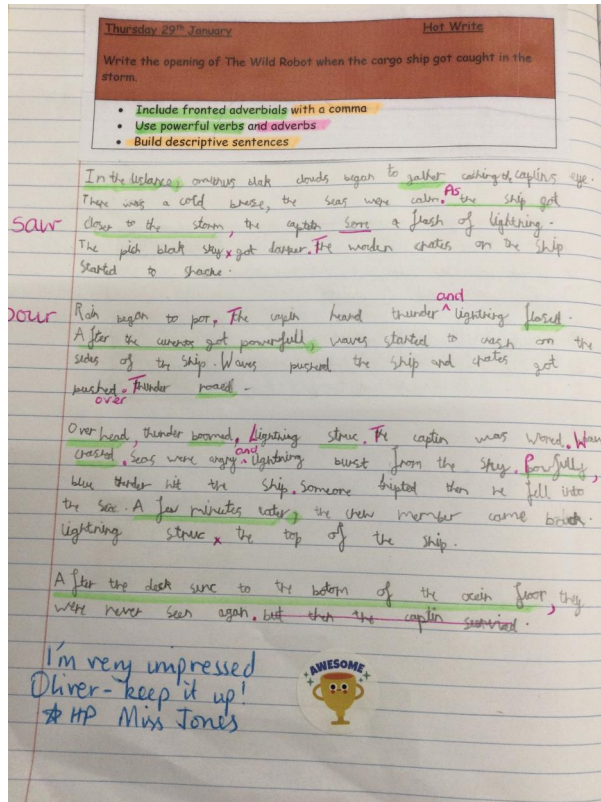 Thursday 29th January Hot Write
Write the opening of The Wild Robot when the cargo ship got caught in the
storm.
• Include fronted adverbials with a comma
• Use powerful verbs and adverbs
• Build descriptive sentences
In the distance, blak clouds began to gather caching captins eye.
There was a cold the seas were calm. As the ship got
saw
closer to the storm, the captin a flash of lightning.
The pich blak sky x got darker. The wooden crates on the ship
started to
pour
Rain began to por. The captin heard thunder and lightning flased.
After the got powerfull, waves started to crash on the
sides of the ship. Waves pushed the ship and crates got
pushed over. Thunder roaed.
Over head, thunder boomed. Lightning struc. The captin was Waves
crased. Seas were angry and lightning burst from the sky. Powfully,
blue thunder hit the ship. Someone tripted then he fell into
the sea. A few minutes later, the chew member came back.
lightning struc x the top of the ship.
After the deck sunc to the botom of the ocein floor, they
were never seen again. but then the captin survived.
I'm very impressed
Oliver - keep it up!
HP Miss Jones
AWESOME